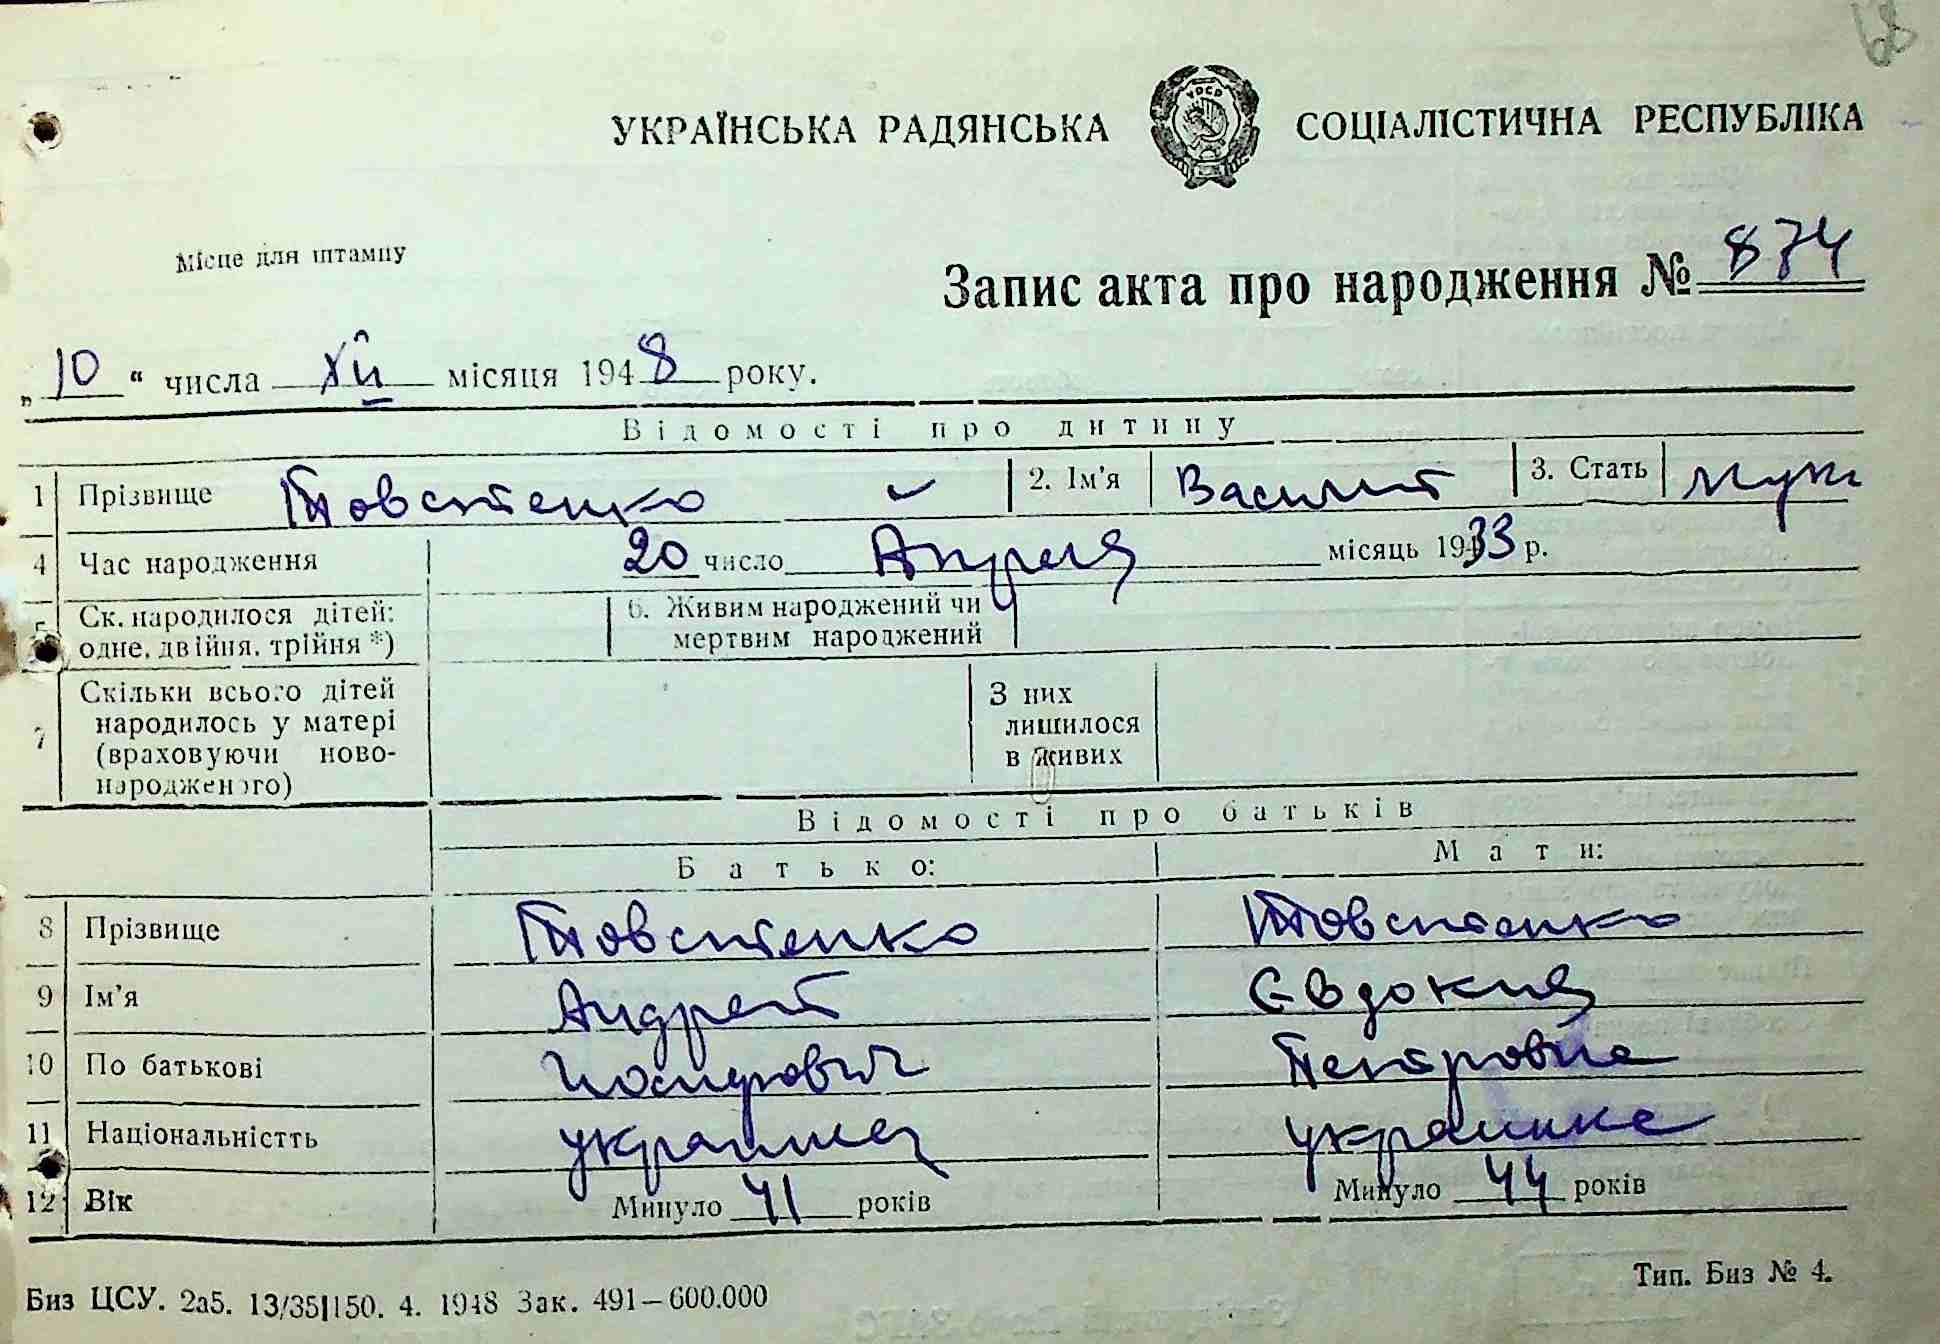 68
УКРАЇНСЬКА РАДЯНСЬКА СОЦІАЛІСТИЧНА РЕСПУБЛІКА
УРСР
Місце для штампу
Запис акта про народження № 874
„ 10 “ числа XII місяця 1948 року.
Відомості про дитину
1 Прізвище Товстенко 2. Ім’я Василий 3. Стать муж
4 Час народження 20 число Апреля місяць 1933 р.
5 Ск. народилося дітей: одне, двійня, трійня *) 6. Живим народжений чи мертвим народжений
7 Скільки всього дітей народилось у матері (враховуючи ново-народженого) З них лишилося в живих
Відомості про батьків
Батько: Мати:
8 Прізвище Товстенко Товстенко
9 Ім’я Андрей Евдокия
10 По батькові Иосипович Петровна
11 Національністть украинец украинка
12 Вік Минуло 41 років Минуло 44 років
Биз ЦСУ. 2а5. 13/35|150. 4. 1948 Зак. 491—600.000 Тип. Биз № 4.